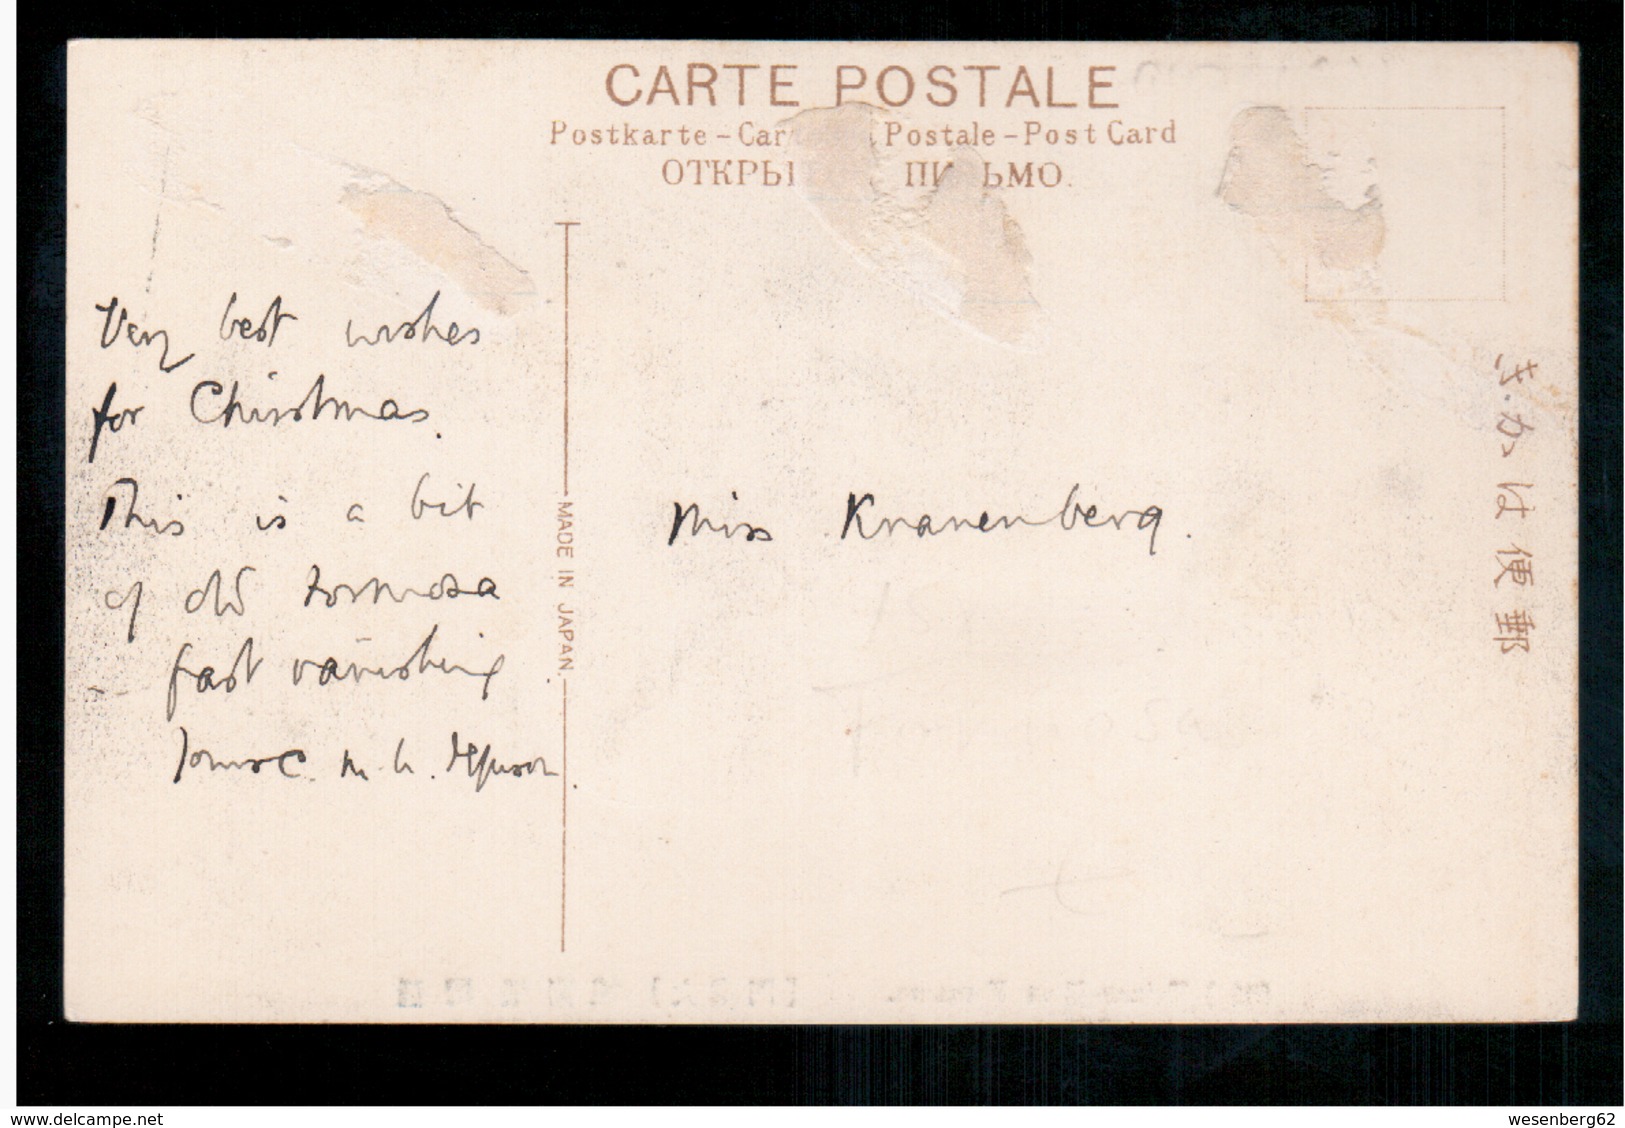 CARTE POSTALE
Postkarte - Car Postale - Post Card
ОТКРЫ ПИ ЬМО.
Very best wishes
for Christmas.
This is a bit
of old Formosa
fast vanishing
MADE IN JAPAN.
Miss Kranenberg.
郵便はかき
www.delcampe.net
wesenberg62